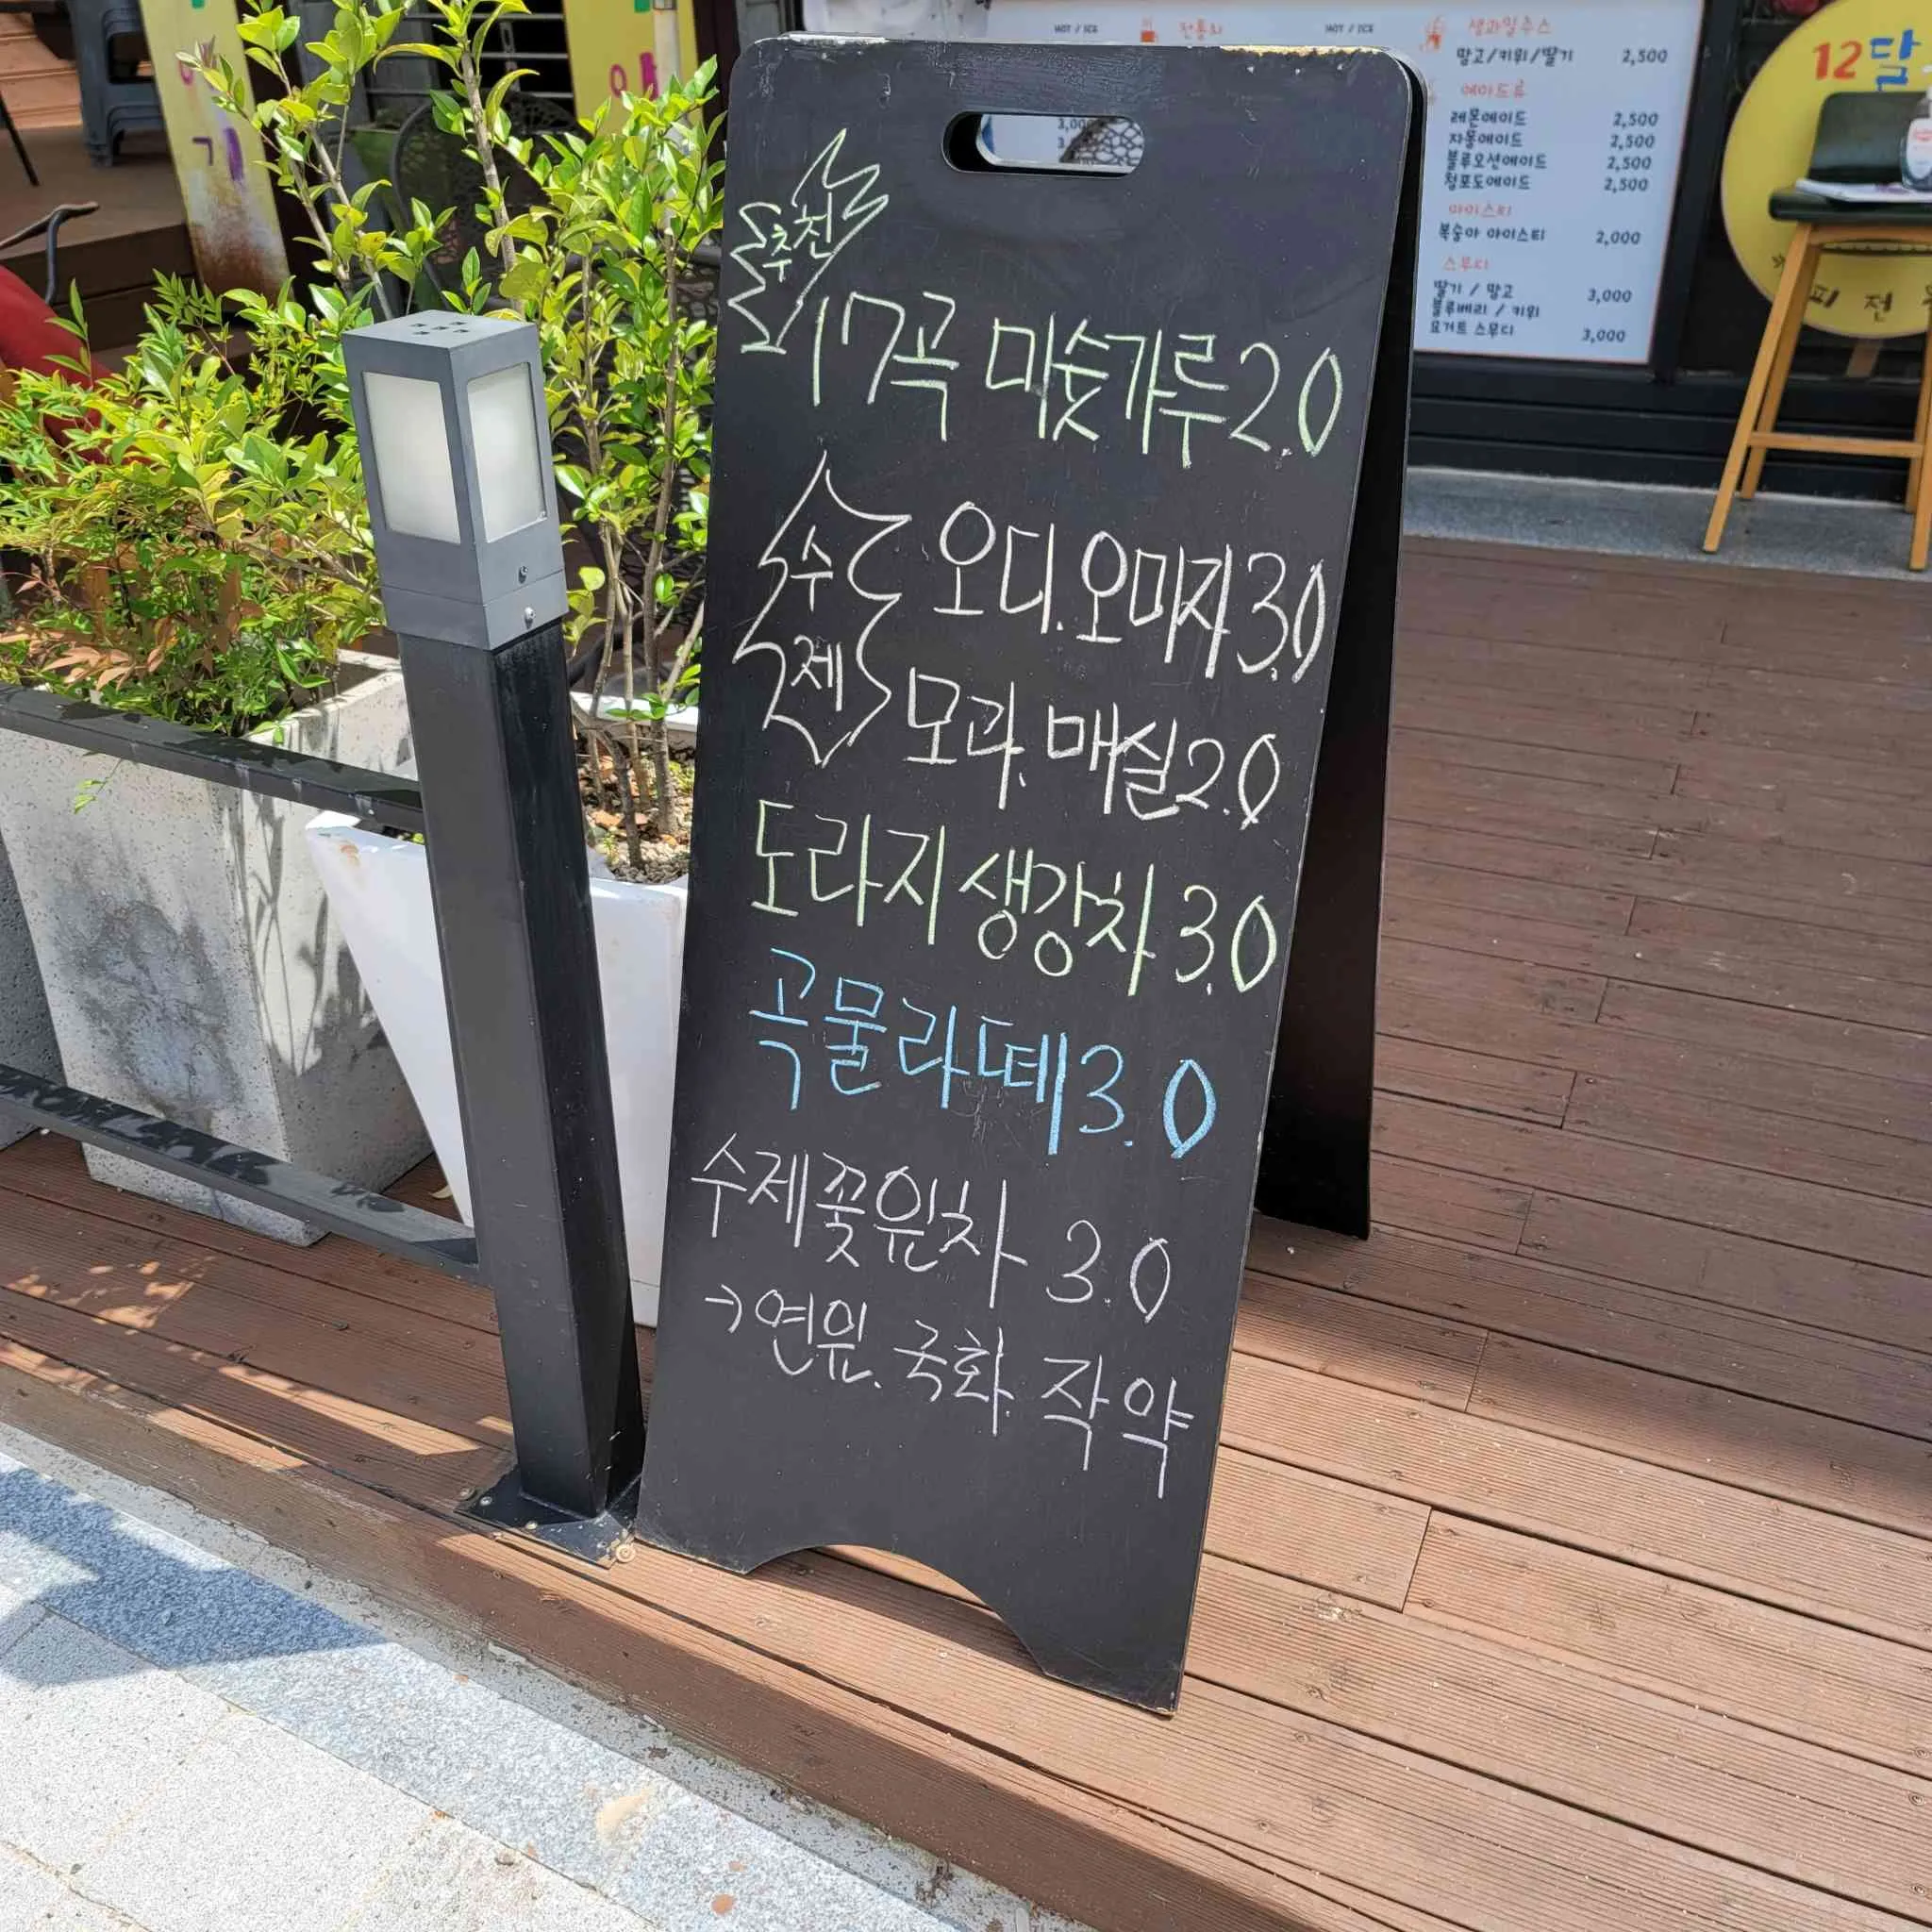 추천
17곡 미숫가루 2.0
수제
오디.오미자 3.0
모과. 매실 2.0
도라지 생강차 3.0
곡물라떼 3.0
수제꽃원차 3.0
→연원. 국화. 작약
HOT / ICE
전통차
HOT / ICE
생과일주스
망고/키위/딸기 2,500
에이드류
레몬에이드 2,500
자몽에이드 2,500
블루오션에이드 2,500
청포도에이드 2,500
아이스티
복숭아 아이스티 2,000
스무디
딸기 / 망고 3,000
블루베리 / 키위
요거트 스무디 3,000
12달
피 전